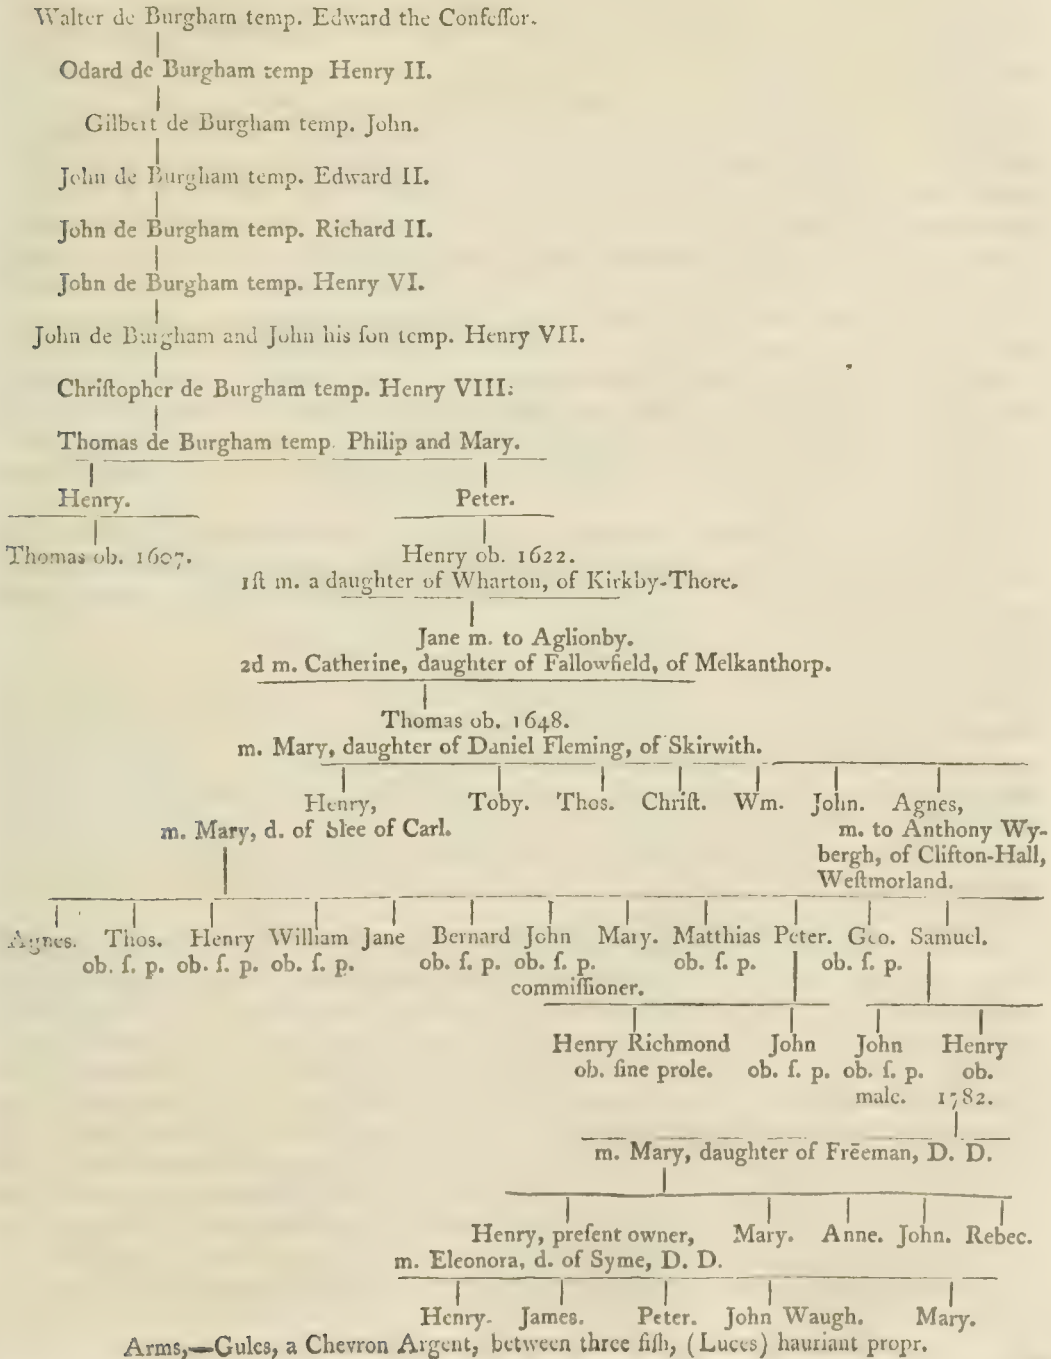 Walter de Burgham temp. Edward the Confeſſor.
Odard de Burgham temp Henry II.
Gilbert de Burgham temp. John.
John de Burgham temp. Edward II.
John de Burgham temp. Richard II.
John de Burgham temp. Henry VI.
John de Burgham and John his ſon temp. Henry VII.
Chriſtopher de Burgham temp. Henry VIII.
Thomas de Burgham temp. Philip and Mary.
Henry. Peter.
Thomas ob. 1607. Henry ob. 1622.
1ſt m. a daughter of Wharton, of Kirkby-Thore.
Jane m. to Aglionby.
2d m. Catherine, daughter of Fallowfield, of Melkanthorp.
Thomas ob. 1648.
m. Mary, daughter of Daniel Fleming, of Skirwith.
Henry, Toby. Thos. Chriſt. Wm. John. Agnes,
m. Mary, d. of Slee of Carl. m. to Anthony Wy-
bergh, of Clifton-Hall,
Weſtmorland.
Agnes. Thos. Henry William Jane Bernard John Mary. Matthias Peter. Geo. Samuel.
ob. ſ. p. ob. ſ. p. ob. ſ. p. ob. ſ. p. ob. ſ. p. ob. ſ. p. ob. ſ. p.
commiſſioner.
Henry Richmond John John Henry
ob. ſine prole. ob. ſ. p. ob. ſ. p. ob.
male. 1782.
m. Mary, daughter of Freeman, D. D.
Henry, preſent owner, Mary. Anne. John. Rebec.
m. Eleonora, d. of Syme, D. D.
Henry. James. Peter. John Waugh. Mary.
Arms,—Gules, a Chevron Argent, between three fiſh, (Luces) hauriant propr.